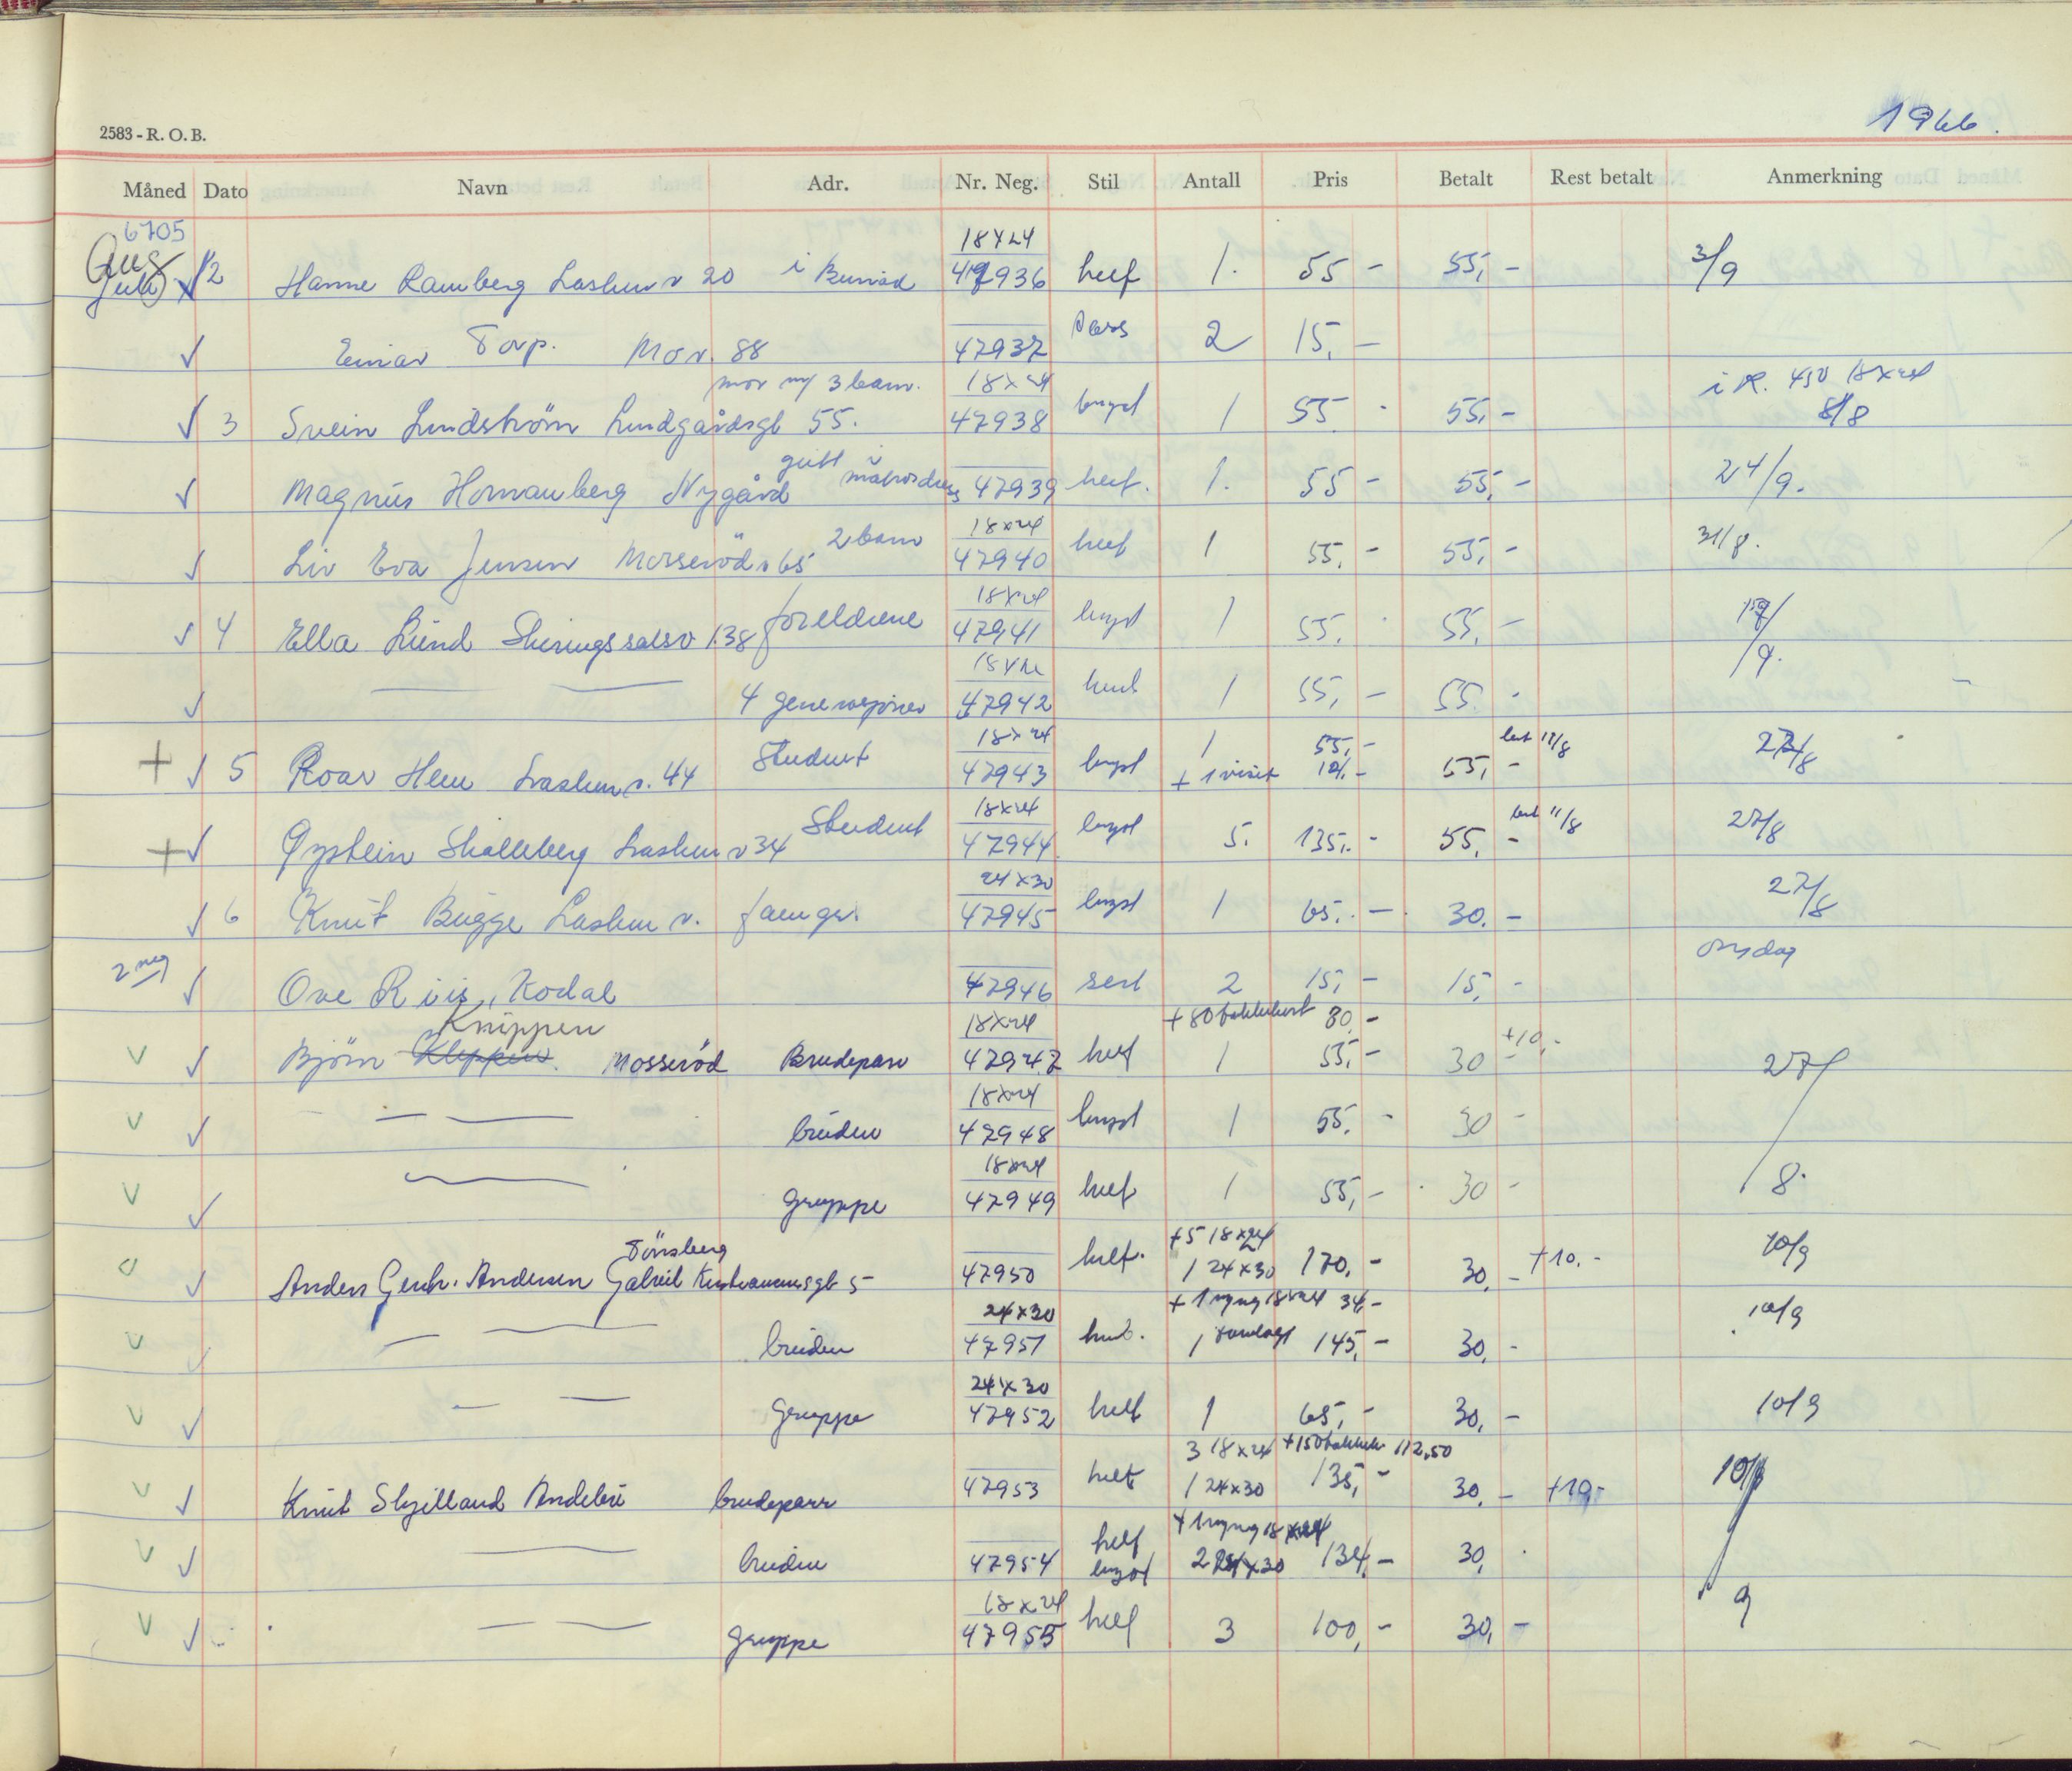 1966.
2583 - R. O. B.
Måned Dato Navn Adr. Nr. Neg. Stil Antall Pris Betalt Rest betalt Anmerkning
6705
Aug 18x24
2 Hanne Ramberg Laskenv 20 i Bunad 47936 helf 1. 55 - 55,- 3/9
Einar Torp. Mov. 88 47937 Pass 2 15,-
mor m/ 3 barn. 18x24 i R. 450 18x24
3 Svein Lundström Lundgårdsgt 55. 47938 byst 1 55 - 55,- 8/8
gutt i
Magnus Homanberg Nygård matrosdress 47939 helf. 1. 55 - 55,- 24/9.
2 barn 18x24
Liv Eva Jensen Mosserödv 65 47940 helf 1 55,- 55,- 31/8.
18x24
4 Ella Lund Skiringssalsv 138 foreldrene 47941 byst 1 55,- 55,-
18x24 /9.
4 generasjoner 47942 1 55,- 55 -
Student 18x24 1 55,- 27/8
5 Roar Hem Laskenv. 44 47943 byst + 1 visit 12,- 55,-
Student 18x24 11/8 27/8
Øystein Skalleberg Laskenv 34 47944 byst 5. 135,- 55,-
24x30 27/8
6 Knut Bugge Laskenv. famgr. 47945 byst 1 65,- 30,-
2 neg onsdag
Ove Riis, Kodal 47946 2 15,- 15,-
Knippen 18x24 + 80 takkekort 80,- +10,-
Björn Mosseröd Brudepar 47947 helf 1 55,- 30 - 27/
18x24
bruden 47948 byst 1 55,- 30 -
18x24
gruppe 47949 helf 1 55,- 30 - 8.
Tönsberg +5 18x24
Anders Gerh. Andersen Gabriel Kristiansensgt 5 47950 helf. 1 24x30 170,- 30,- +10,- 10/9
24x30 + 1 ny neg 18x24 34,-
bruden 47951 1 145,- 30,- 10/9
24x30
gruppe 47952 helf 1 65,- 30,- 10/9
3 18x24 +150 takkek 112,50
Knut Skjelland Andebu brudepar 47953 helf 1 24x30 135,- 30,- +10,- 10/
helf + 1 ny neg 18x24
bruden 47954 byst 2 24x30 134,- 30,
18x24 9
gruppe 47955 helf 3 100,- 30,-